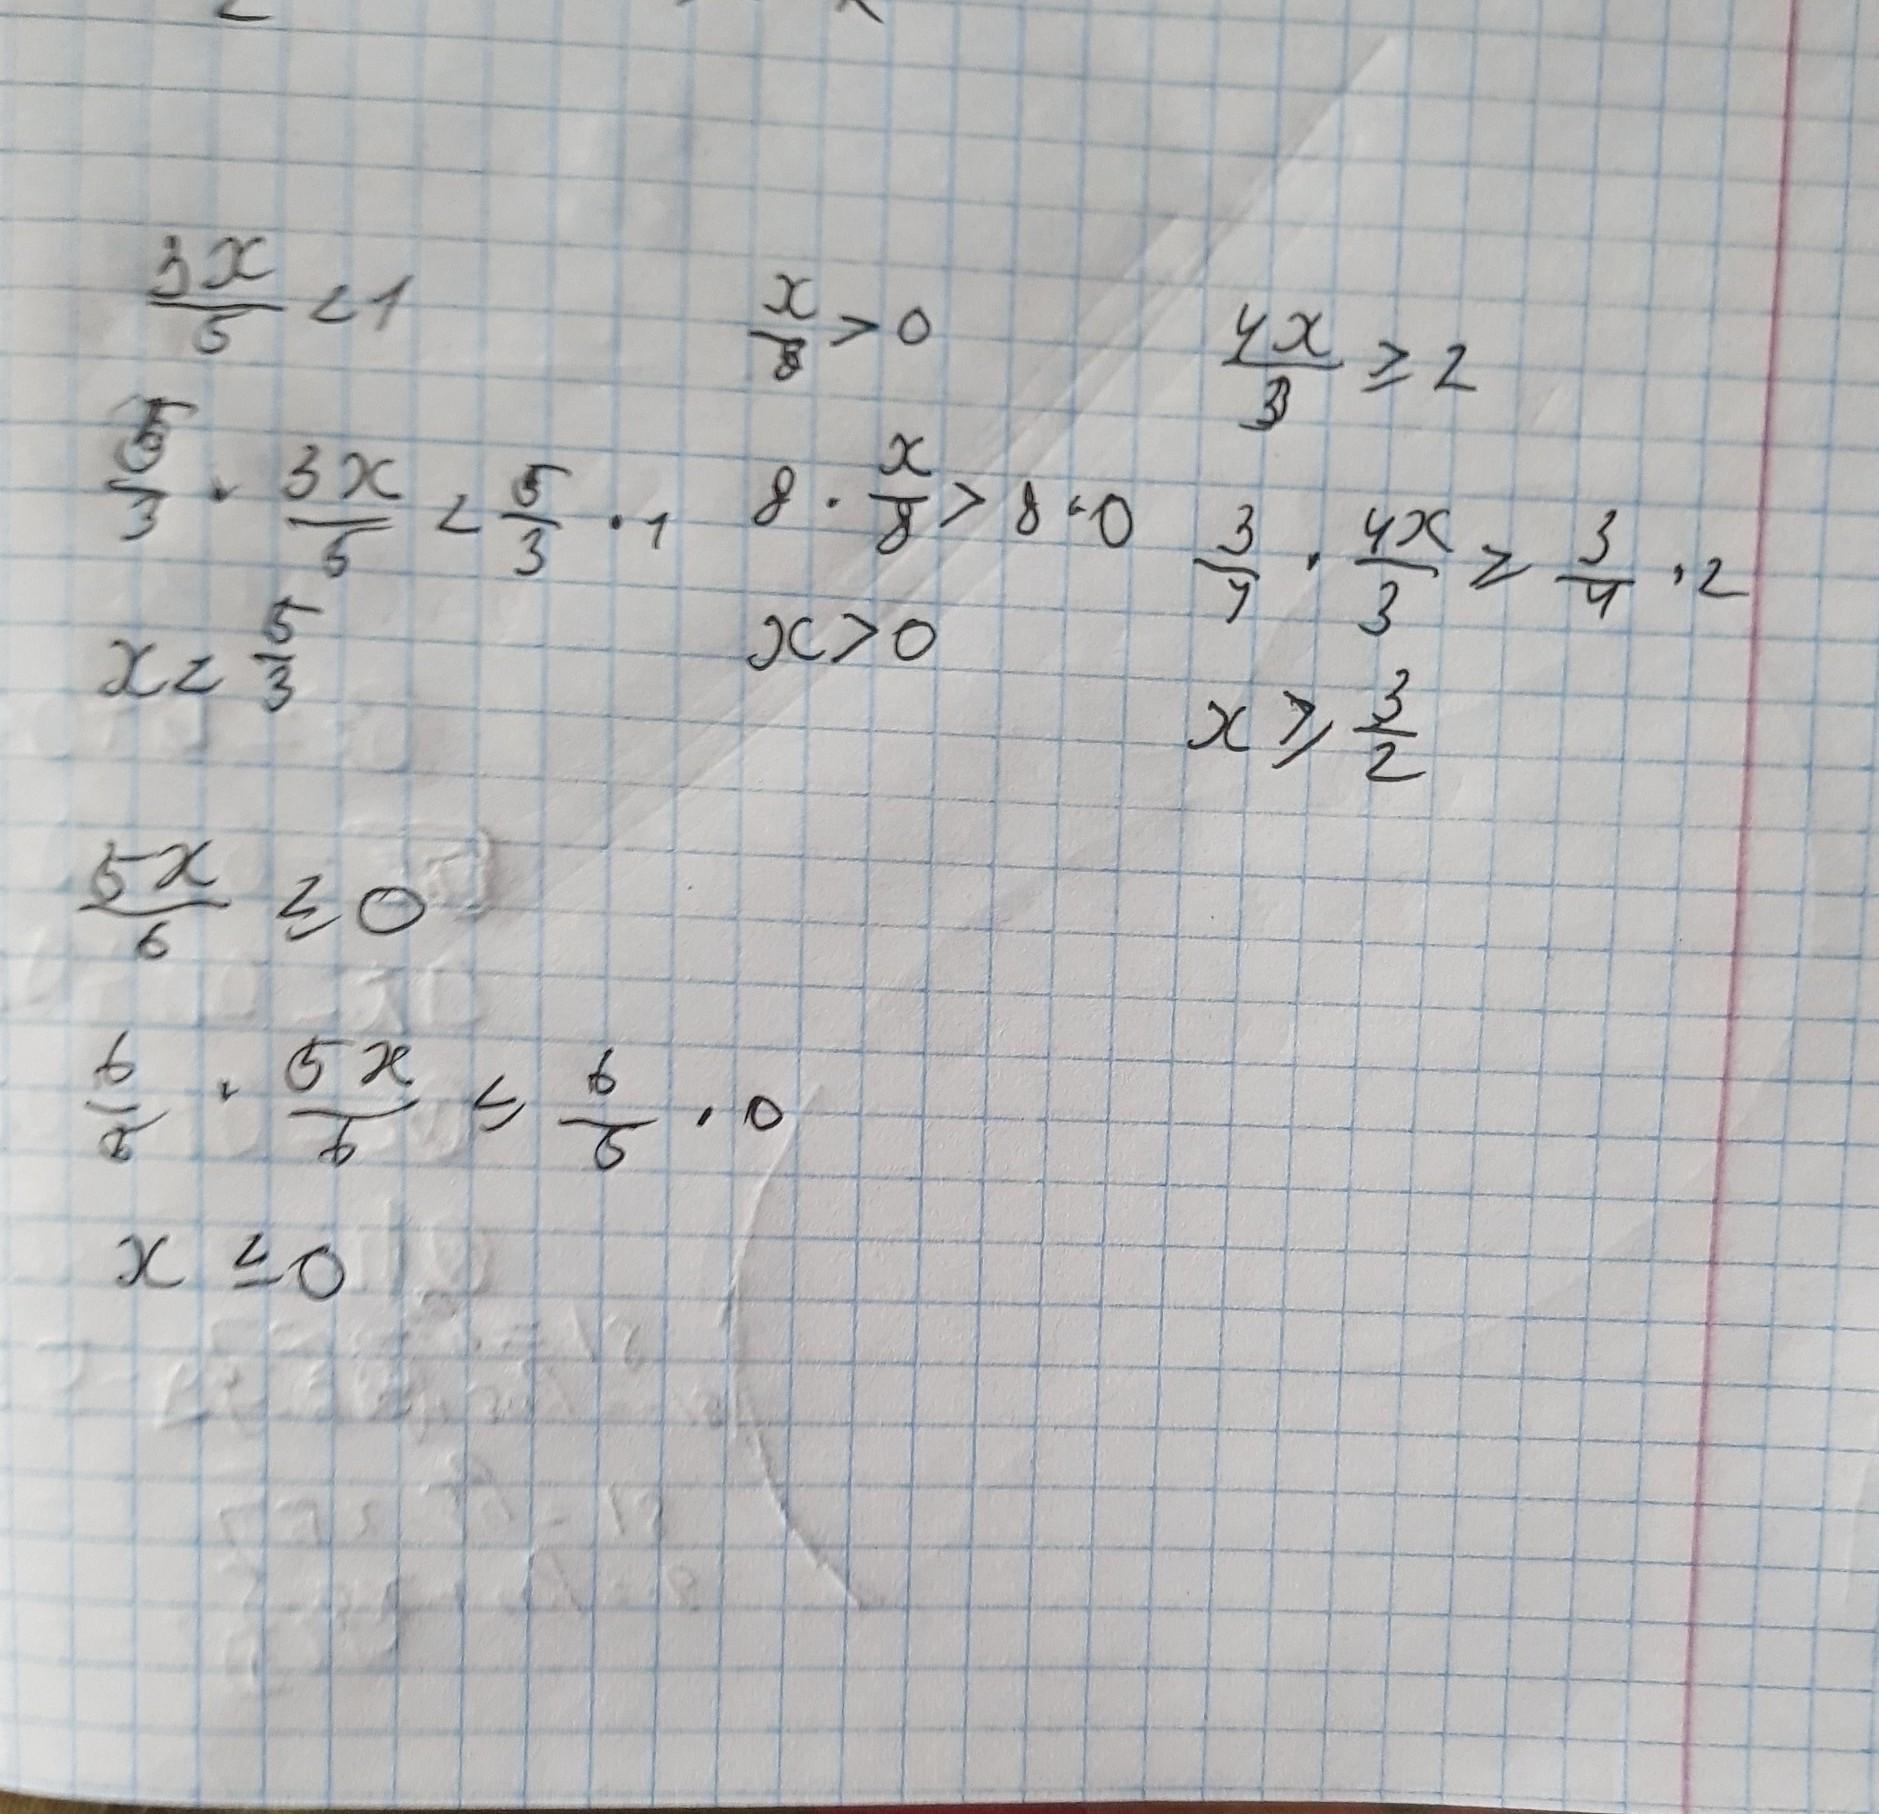 3x/5 < 1
5/3 · 3x/5 < 5/3 · 1
x < 5/3
x/8 > 0
8 · x/8 > 8 · 0
x > 0
4x/3 ≥ 2
3/4 · 4x/3 ≥ 3/4 · 2
x ≥ 3/2
5x/6 ≤ 0
6/5 · 5x/6 ≤ 6/5 · 0
x ≤ 0